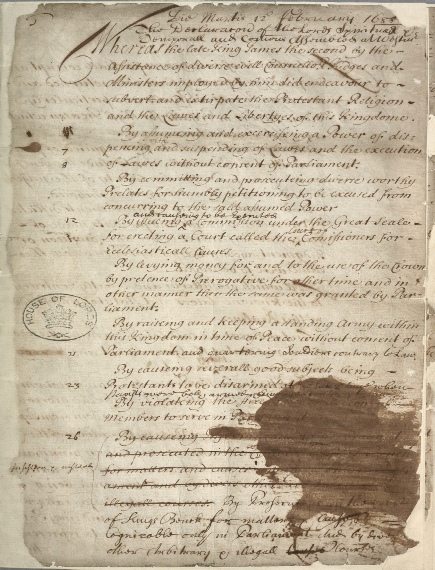 Die Martis 12o February 1688
The Declaration of the Lords Spirituall
Temporall and Comons Assembled att Westmr
Whereas the late King James the second by the
Assistance of diverse evill Councellors Judges and
Ministers imployed by him did endeavour to
subvert and extirpate the Protestant Religion
and the Lawes and Libertyes of this Kingdome.
By assumeing and exerciseing a Power of dis
7 pensing with and suspending of Lawes and the execution
8 of Lawes without consent of Parliament.
By committing and prosecuting diverse worthy
Prelates for humbly petitioning to be excused from
concurring to the said assumed Power
and causing to be executed
12 By issueing a Commission under the Great Seale
for erecting a Court called the Court of Comissioners for
Ecclesiasticall Causes
By levying money for and to the use of the Crown
by pretence of Prerogative for other time and in
other manner then the same was granted by Par
liament.
By raiseing and keeping a standing Army within
this Kingdome in time of Peace without consent of
21 Parliament and quartering Souldiers contrary to Law.
By causeing severall good subjects being
23 Protestants to be disarmed at
By violating the
members to serve in
26 By causeing
and prosecuted in the
for matters and causes
illegall courses. By Prosecu
of Kings Bench for matters causes
cognizable only in Parliament and by
other Arbitrary & illegall Courses
HOUSE OF LORDS